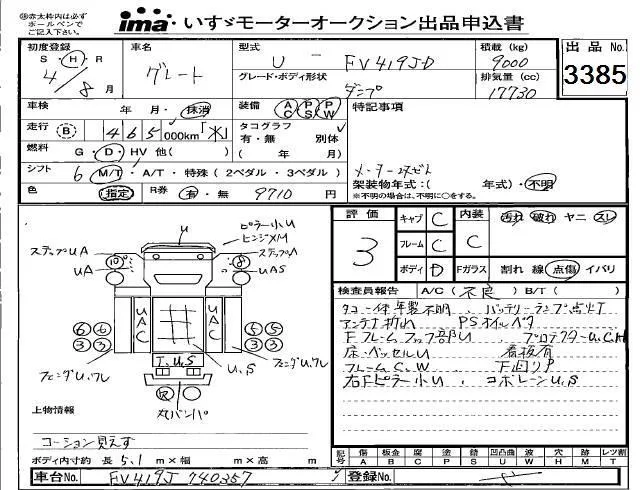 ※赤太枠内は必ず
ボールペンで
ご記入下さい。
ima・いすゞモーターオークション出品申込書
初度登録 車名 型式 積載 (kg) 出品 No.
S・H・R グレート U - FV419JD 9000 3385
4/8月 グレード・ボディ形状 排気量 (cc)
ダンプ 17730
車検 年 月・抹消 装備 AC PS PW 特記事項
走行 B 465,000km「水」 タコグラフ 有・無 別体
燃料 G・D・HV 他( ) ( 年 月)
シフト 6 M/T・A/T・特殊(2ペダル・3ペダル) 架装物年式:( 年式)・不明
色 指定 R券 有・無 9710 円 ※不明の場合は、不明に○をする。
評価 3 キャブ C 内装 C 汚れ 破れ ヤニ スレ
フレーム C
ボディ D Fガラス 割れ 線 点傷 イバリ
検査員報告 A/C(不良) B/T( )
タコ一体年製不明、バッテリーランプ点灯
アンテナ折れ PSオイルベタ
Fフレームフック部U、プロテクターU,C,H
床・ベッセルU 看板有
フレームC、W 下回りP
右Fピラー小U、コボレーンU,S
U
ピラー小U
ヒンジXM
ステップUA
ステップA
10 8
UA
UAS
UAC
UAC
6 6
3 3
5 5
3 3
U、S
T、U、S
フェンダU、ワレ
フェンダU、ワレ
R
丸バンパ
上物情報
コーション見えず
ボディ内寸約 長 5.1 m×幅 m×高 m
記号 傷 板金 腐 塗 錆 凹凸曲 波 穴 跡 レンズ割
A B C P S U W H M T
車台No. FV419J 740357 登録No.